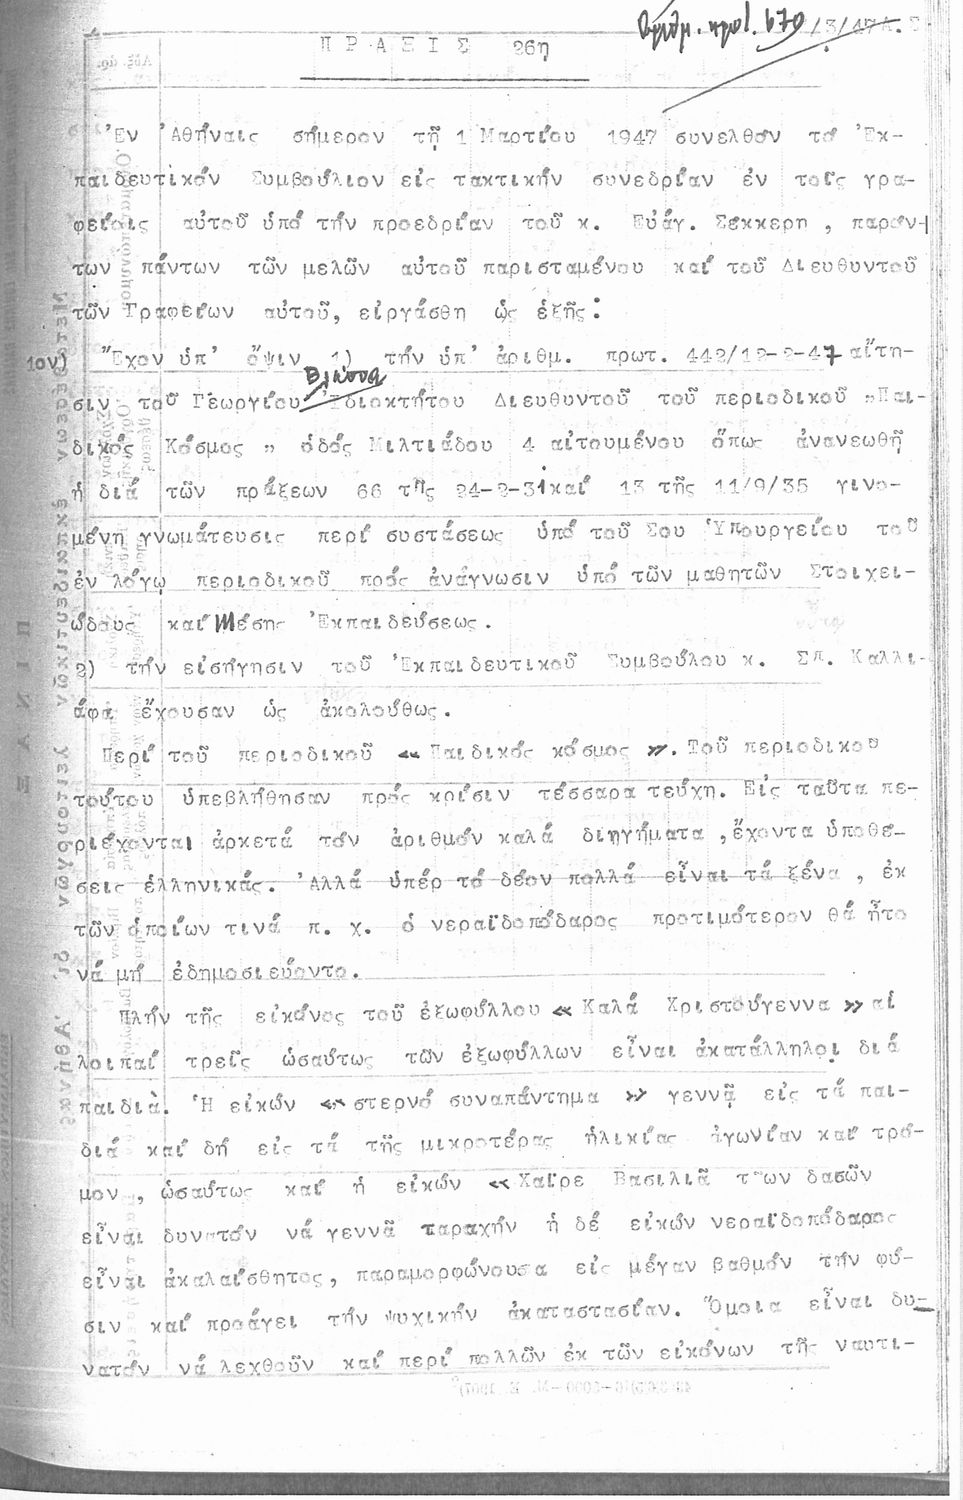 Αριθμ. πρωτ. 670 /3/47
ΠΡΑΞΙΣ 26η
Ἐν Ἀθήναις σήμερον τῇ 1 Μαρτίου 1947 συνελθόν τό Ἐκ-
παιδευτικόν Συμβούλιον εἰς τακτικήν συνεδρίαν ἐν τοῖς γρα-
φείοις αὐτοῦ ὑπό τήν προεδρίαν τοῦ κ. Εὐάγ. Σέκκερη , παρόν-
των πάντων τῶν μελῶν αὐτοῦ παρισταμένου καί τοῦ Διευθυντοῦ
τῶν Γραφείων αὐτοῦ, εἰργάσθη ὡς ἑξῆς:
1ον) Ἔχον ὑπ' ὄψιν 1) τήν ὑπ' ἀριθμ. πρωτ. 442/12-2-47 αἴτη-
σιν τοῦ Γεωργίου Βλέσσα Ἰδιοκτήτου Διευθυντοῦ τοῦ περιοδικοῦ "Παι-
δικός Κόσμος " ὁδός Μιλτιάδου 4 αἰτουμένου ὅπως ἀνανεωθῇ
ἡ διά τῶν πράξεων 66 τῆς 24-2-31 καί 13 τῆς 11/9/35 γινο-
μένη γνωμάτευσις περί συστάσεως ὑπό τοῦ Σου Ὑπουργείου τοῦ
ἐν λόγῳ περιοδικοῦ πρός ἀνάγνωσιν ὑπό τῶν μαθητῶν Στοιχει-
ώδους καί Μέσης Ἐκπαιδεύσεως.
2) τήν εἰσήγησιν τοῦ Ἐκπαιδευτικοῦ Συμβούλου κ. Σπ. Καλλι-
άφα ἔχουσαν ὡς ἀκολούθως.
Περί τοῦ περιοδικοῦ « Παιδικός κόσμος ». Τοῦ περιοδικοῦ
τούτου ὑπεβλήθησαν πρός κρίσιν τέσσαρα τεύχη. Εἰς ταῦτα πε-
ριέχονται ἀρκετά τόν ἀριθμόν καλά διηγήματα ,ἔχοντα ὑποθέ-
σεις ἑλληνικάς. Ἀλλά ὑπέρ τό δέον πολλά εἶναι τά ξένα , ἐκ
τῶν ὁποίων τινά π. χ. ὁ νεραϊδοπόδαρος προτιμότερον θά ἦτο
νά μή ἐδημοσιεύοντο.
Πλήν τῆς εἰκόνος τοῦ ἐξωφύλλου « Καλά Χριστούγεννα » αἱ
λοιπαί τρεῖς ὡσαύτως τῶν ἐξωφύλλων εἶναι ἀκατάλληλοι διά
παιδιά. Ἡ εἰκών « στερνό συναπάντημα » γεννᾷ εἰς τά παι-
διά καί δή εἰς τά τῆς μικροτέρας ἡλικίας ἀγωνίαν καί τρό-
μον , ὡσαύτως καί ἡ εἰκών « Χαῖρε Βασιλιᾶ των δασῶν
εἶναι δυνατόν νά γεννᾷ ταραχήν ἡ δέ εἰκών νεραϊδοπόδαρος
εἶναι ἀκαλαίσθητος, παραμορφώνουσα εἰς μέγαν βαθμόν τήν φύ-
σιν καί προάγει τήν ψυχικήν ἀκαταστασίαν. Ὅμοια εἶναι δυ-
νατόν νά λεχθοῦν καί περί πολλῶν ἐκ τῶν εἰκόνων τῆς ναυτι-